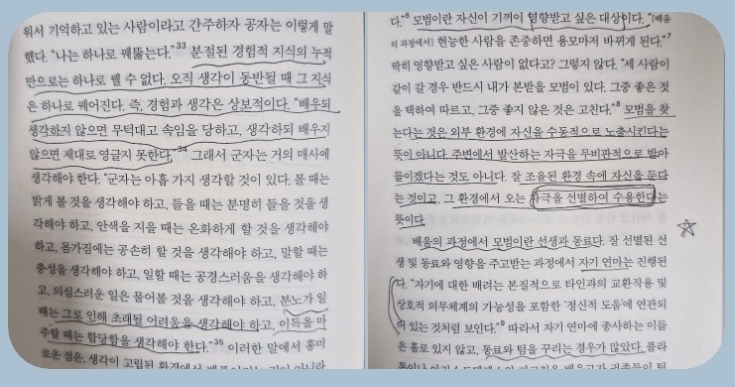 워서 기억하고 있는 사람이라고 간주하자 공자는 이렇게 말
했다. “나는 하나로 꿰뚫는다.”33 분절된 경험적 지식의 누적
만으로는 하나로 꿸 수 없다. 오직 생각이 동반될 때 그 지식
은 하나로 꿰어진다. 즉, 경험과 생각은 상보적이다. “배우되
생각하지 않으면 무턱대고 속임을 당하고, 생각하되 배우지
않으면 제대로 영글지 못한다.”34 그래서 군자는 거의 매사에
생각해야 한다. “군자는 아홉 가지 생각할 것이 있다. 볼 때는
밝게 볼 것을 생각해야 하고, 들을 때는 분명히 들을 것을 생
각해야 하고, 안색을 지을 때는 온화하게 할 것을 생각해야
하고, 몸가짐에는 공손히 할 것을 생각해야 하고, 말할 때는
충성을 생각해야 하고, 일할 때는 공경스러움을 생각해야 하
고, 의심스러운 일은 물어볼 것을 생각해야 하고, 분노가 일
때는 그로 인해 초래될 어려움을 생각해야 하고, 이득을 마
주할 때는 합당함을 생각해야 한다.”35 이러한 말에서 흥미
로운 점은, 생각이 고립된 환경에서
다.”6 모범이란 자신이 기꺼이 영향받고 싶은 대상이다. “[배움
의 과정에서] 현능한 사람을 존중하면 용모마저 바뀌게 된다.”7
딱히 영향받고 싶은 사람이 없다고? 그렇지 않다. “세 사람이
같이 갈 경우 반드시 내가 본받을 모범이 있다. 그중 좋은 것
을 택하여 따르고, 그중 좋지 않은 것은 고친다.”8 모범을 찾
는다는 것은 외부 환경에 자신을 수동적으로 노출시킨다는
뜻이 아니다. 주변에서 발산하는 자극을 무비판적으로 받아
들이겠다는 것도 아니다. 잘 조율된 환경 속에 자신을 둔다
는 것이고, 그 환경에서 오는 자극을 선별하여 수용한다는
뜻이다.
배움의 과정에서 모범이란 선생과 동료다. 잘 선별된 선
생 및 동료와 영향을 주고받는 과정에서 자기 연마는 진행된
다. “자기에 대한 배려는 본질적으로 타인과의 교환작용 및
상호적 의무체계의 가능성을 포함한 ‘정신적 도움’에 연관되
어 있는 것처럼 보인다.”9 따라서 자기 연마에 종사하는 이들
은 홀로 있지 않고, 동료와 팀을 꾸리는 경우가 많았다. 플라